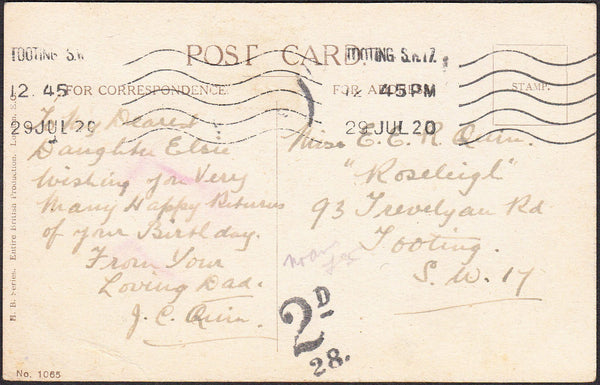 TOOTING S.W.
TOOTING S.W.17.
POST CARD.
12. 45
12. 45PM
29 JUL 20
29 JUL 20
FOR CORRESPONDENCE
FOR ADDRESS
STAMP.
To My Dearest
Daughter Elsie
Wishing you Very
Many Happy Returns
of your Birthday.
From Your
Loving Dad.
J. C. Quin.
Miss E. E. R. Quin.
"Roseleigh"
93 Trevelyan Rd
Tooting.
S. W. 17
2D
28.
H. B. Series. Entire British Production.
No. 1065